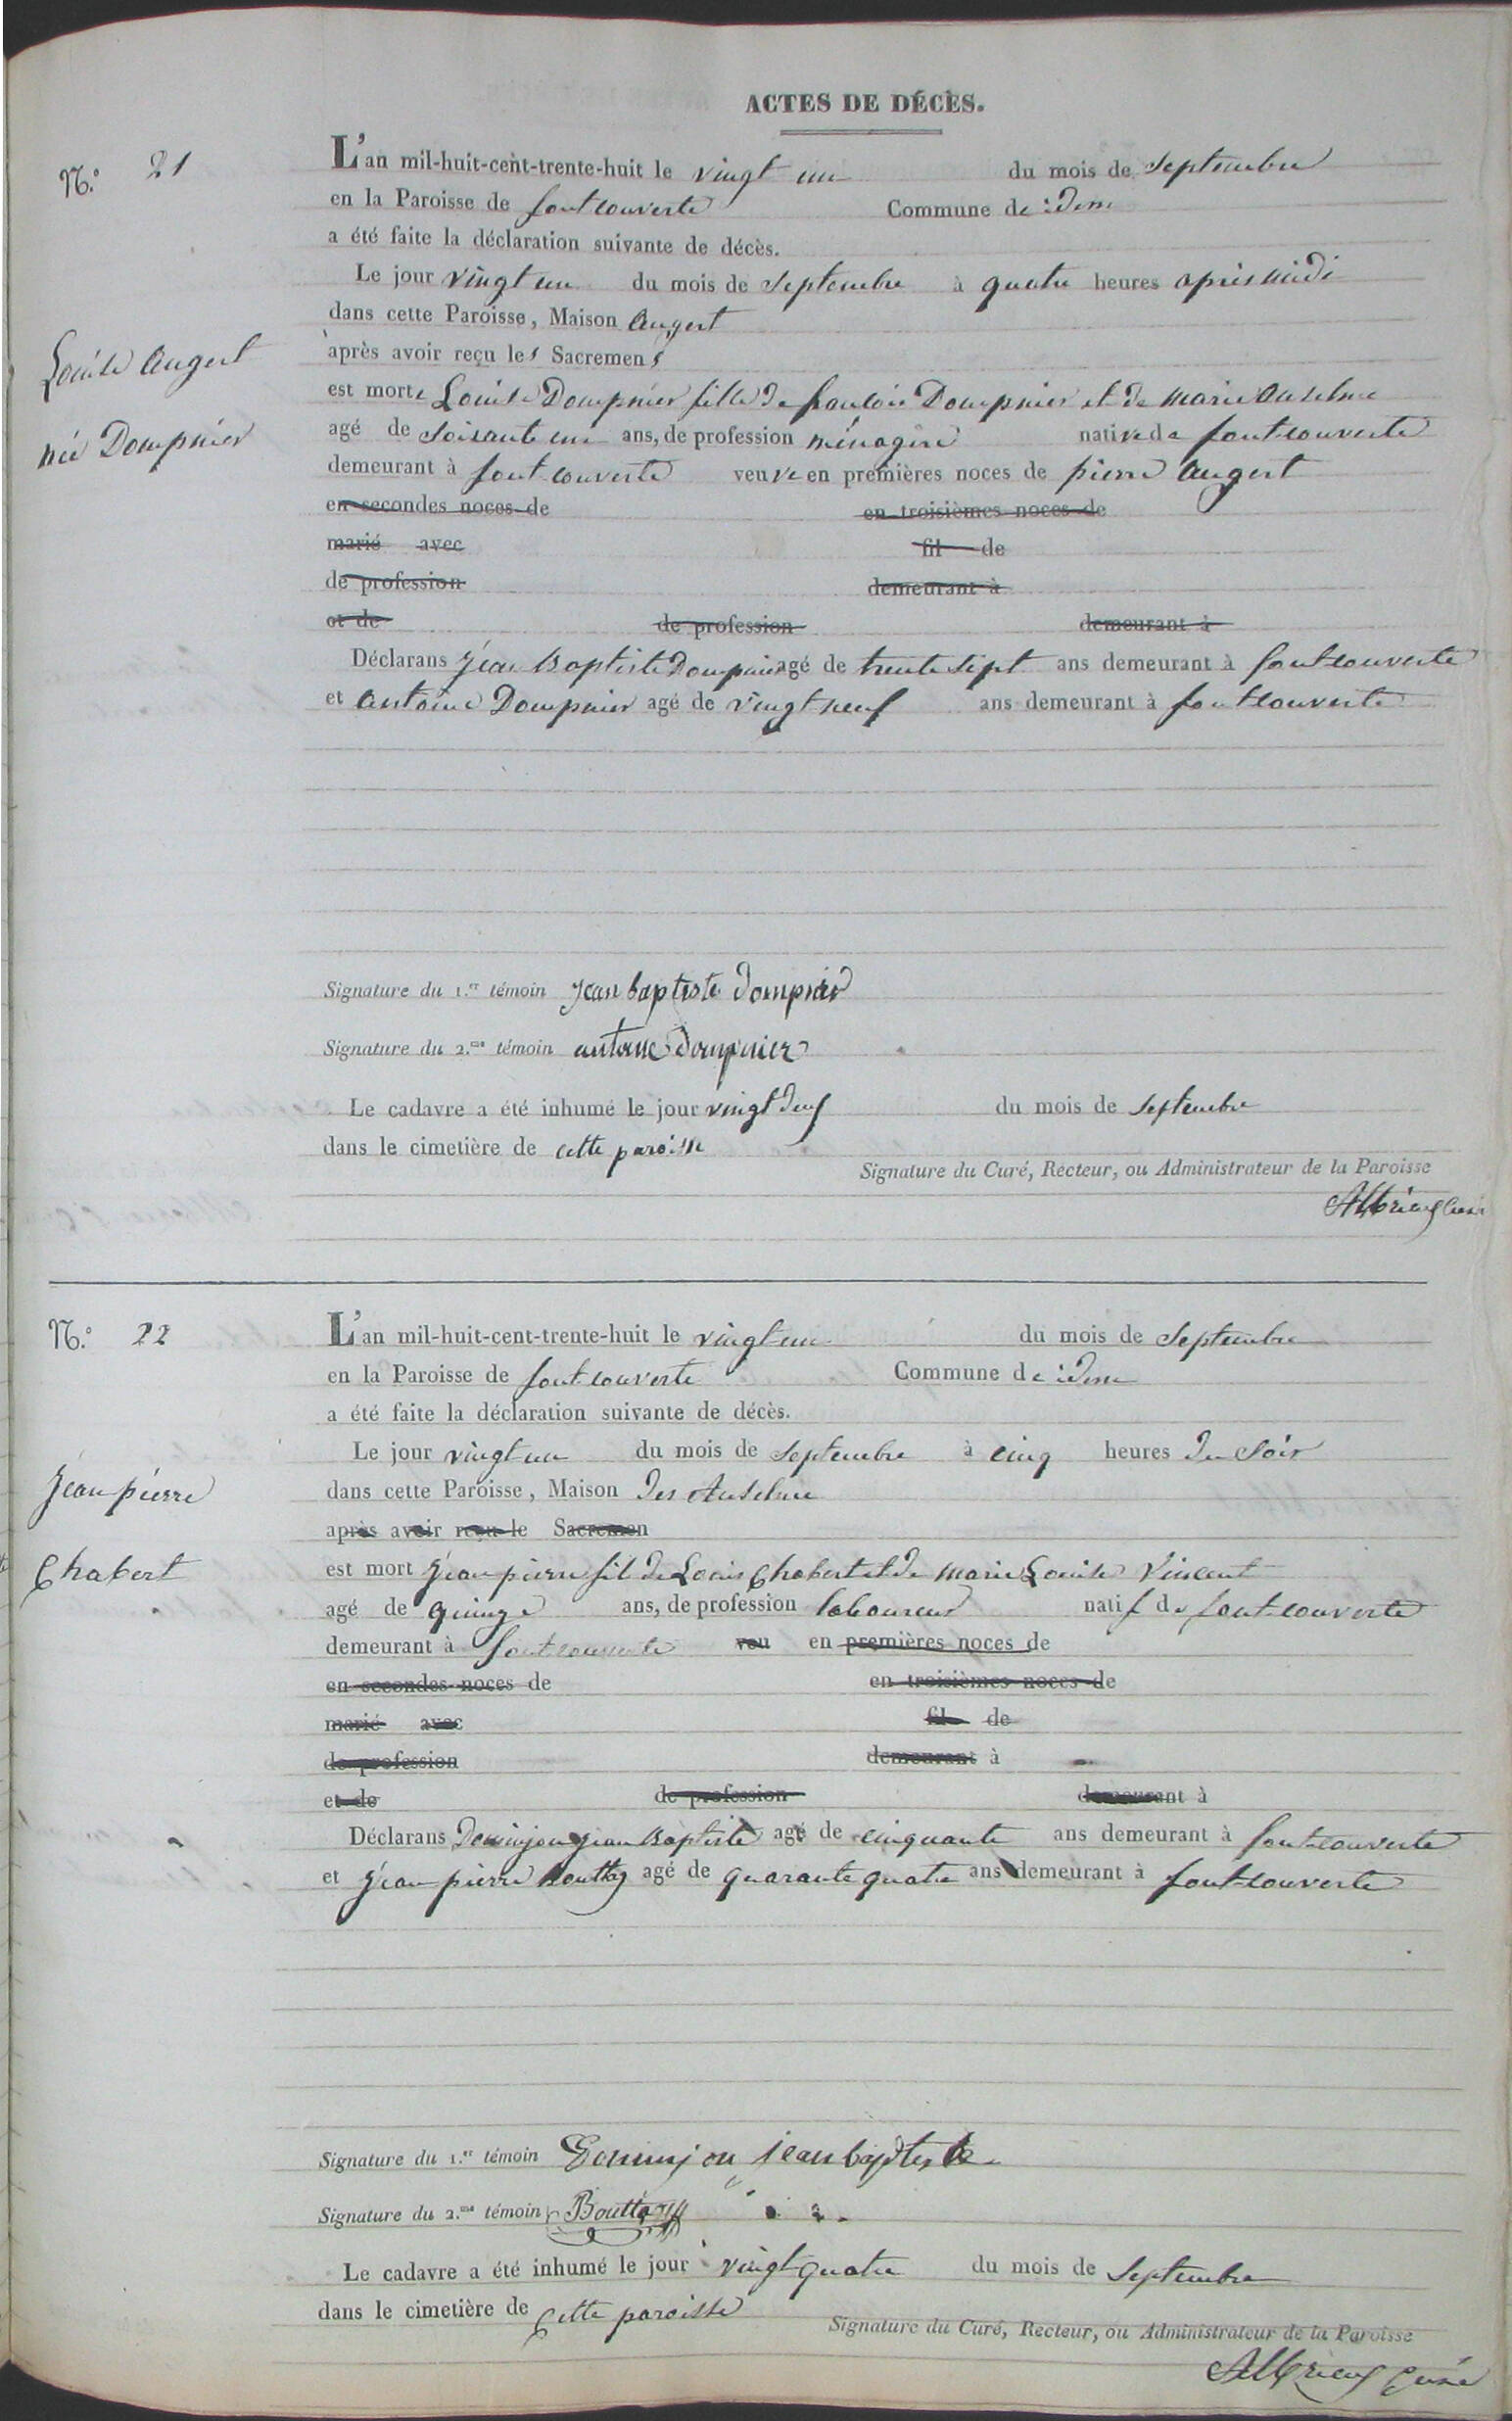 ACTES DE DÉCÈS.
N.º 21
L'an mil-huit-cent-trente-huit le vingt un du mois de septembre
en la Paroisse de fontcouverte Commune de idem
a été faite la déclaration suivante de décès.
Le jour vingt un du mois de septembre à quatre heures après midi
dans cette Paroisse, Maison Augert
après avoir reçu les Sacremens
Louise Augert
née Dompnier
est morte Louise Dompnier fille de françois Dompnier et de marie Anselme
agé de soisante un ans, de profession ménagère native de fontcouverte
demeurant à fontcouverte veuve en premières noces de pierre Augert
en secondes noces de en troisièmes noces de
marié avec fil de
de profession demeurant à
et de de profession demeurant à
Déclarans Jean Baptiste Dompnier agé de trente sept ans demeurant à fontcouverte
et Antoine Dompnier agé de vingt neuf ans demeurant à fontcouverte
Signature du 1.er témoin jean baptiste dompnier
Signature du 2.me témoin antoine dompnier
Le cadavre a été inhumé le jour vingt deux du mois de septembre
dans le cimetière de cette paroisse
Signature du Curé, Recteur, ou Administrateur de la Paroisse
Albrieux Curé
N.º 22
L'an mil-huit-cent-trente-huit le vingt un du mois de septembre
en la Paroisse de fontcouverte Commune de idem
a été faite la déclaration suivante de décès.
Le jour vingt un du mois de septembre à cinq heures du soir
dans cette Paroisse, Maison des Anselme
après avoir reçu le Sacremen
Jean pierre
Chabert
est mort Jean pierre fil de Louis Chabert et de marie Louise Vincent
agé de quinze ans, de profession laboureur natif de fontcouverte
demeurant à fontcouverte veu en premières noces de
en secondes noces de en troisièmes noces de
marié avec fil de
de profession demeurant à
et de de profession demeurant à
Déclarans Dominjon Jean Baptiste agé de cinquante ans demeurant à fontcouverte
et Jean pierre Bouttaz agé de quarante quatre ans demeurant à fontcouverte
Signature du 1.er témoin Dominjon jean baptiste
Signature du 2.me témoin Bouttaz
Le cadavre a été inhumé le jour vingt quatre du mois de septembre
dans le cimetière de cette paroisse
Signature du Curé, Recteur, ou Administrateur de la Paroisse
Albrieux Curé